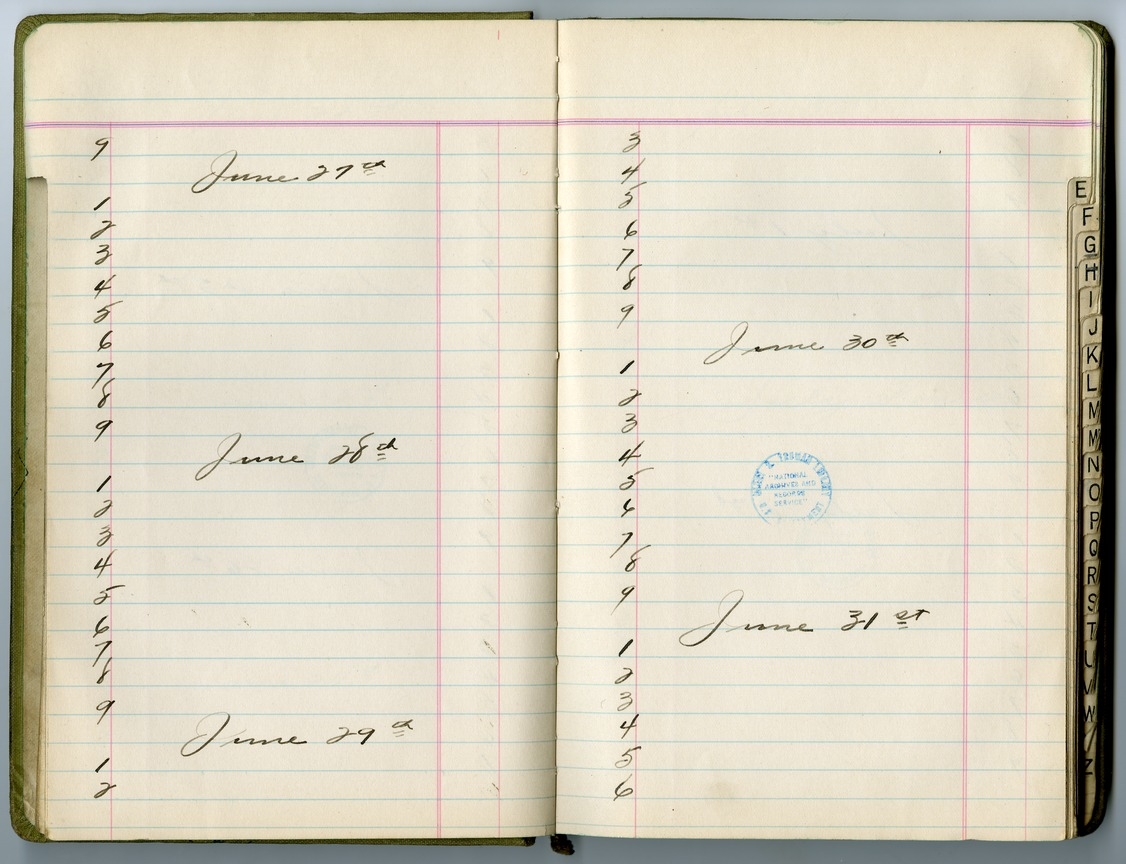 9
June 27th
1
2
3
4
5
6
7
8
9
June 28th
1
2
3
4
5
6
7
8
9
June 29th
1
2
3
4
5
6
7
8
9
June 30th
1
2
3
4
5
6
7
8
9
June 31st
1
2
3
4
5
6
"NATIONAL
ARCHIVES AND
RECORDS
SERVICE"
E
F
G
H
I
J
K
L
M
M
N
O
P
Q
R
S
T
U
V
W
Z